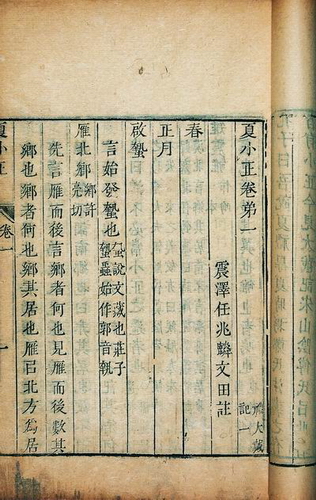 夏小正卷弟一
大戴
記一
震澤任兆麟文田註
春
正月
啟蟄
言始發蟄也
蟄說文藏也莊子
蟄蟲始作郭音執
雁北鄉
鄉許
亮切
先言雁而後言鄉者何也見雁而後數其
鄉也鄉者何也鄉其居也雁㠯北方爲居
夏小正
卷一